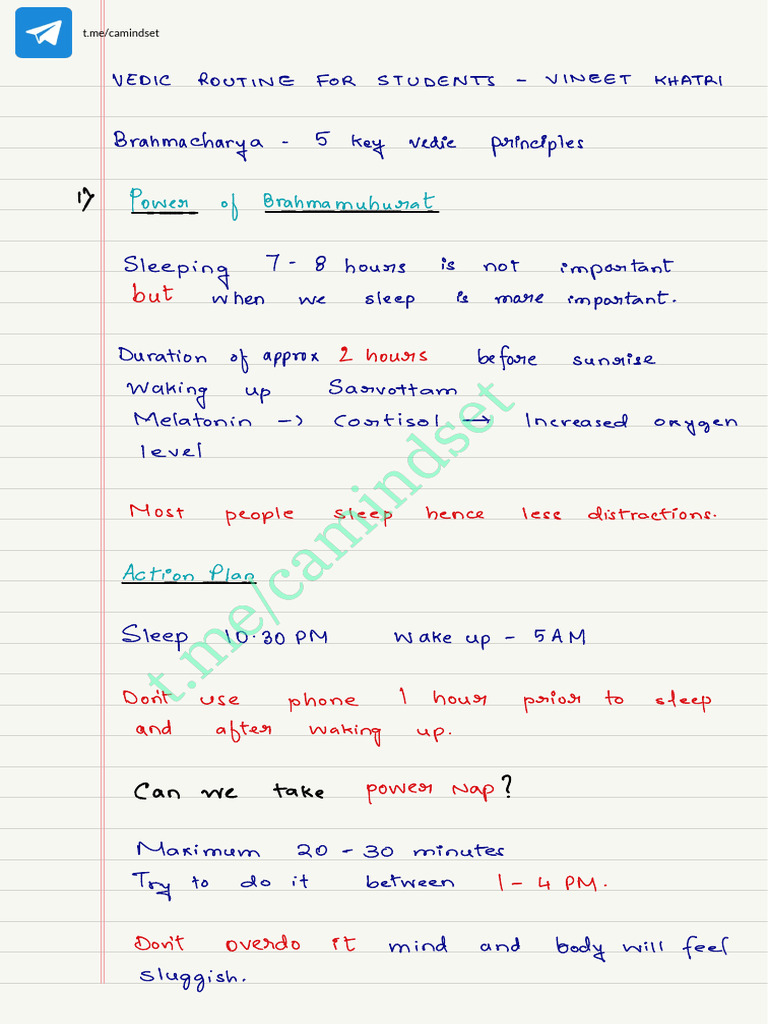 t.me/camindset
VEDIC ROUTINE FOR STUDENTS - VINEET KHATRI
Brahmacharya - 5 key vedic principles
1) Power of Brahmamuhurat
Sleeping 7 - 8 hours is not important
but when we sleep is more important.
Duration of approx 2 hours before sunrise
Waking up Sarvottam
Melatonin -> Cortisol -> Increased oxygen
level
Most people sleep hence less distractions.
t.me/camindset
Action Plan
Sleep 10.30 PM Wake up - 5 AM
Don't use phone 1 hour prior to sleep
and after waking up.
Can we take power Nap?
Maximum 20 - 30 minutes
Try to do it between 1 - 4 PM.
Don't overdo it mind and body will feel
sluggish.